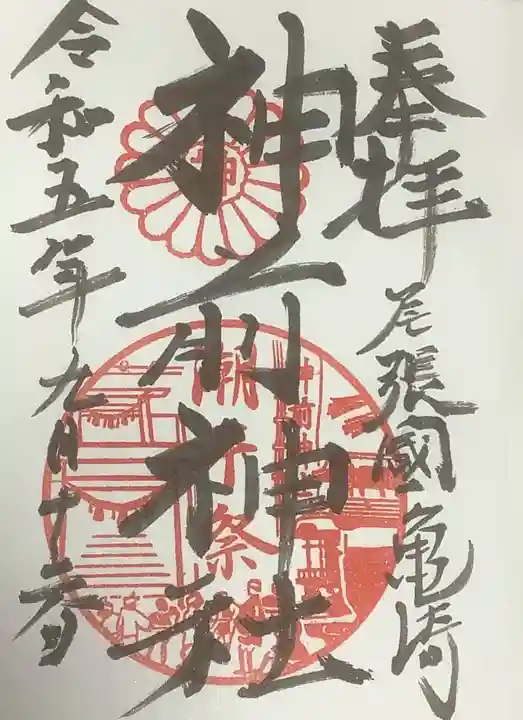 奉拝
尾張國亀崎
神前神社
潮干祭
令和五年九月十